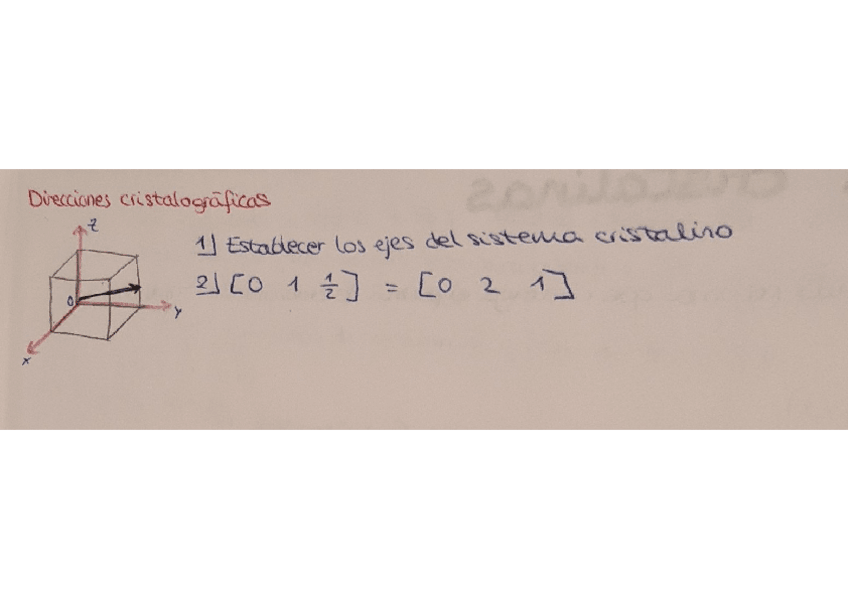 Direcciones cristalográficas
z
1) Establecer los ejes del sistema cristalino
2) [0 1 1/2] = [0 2 1]
0
y
x